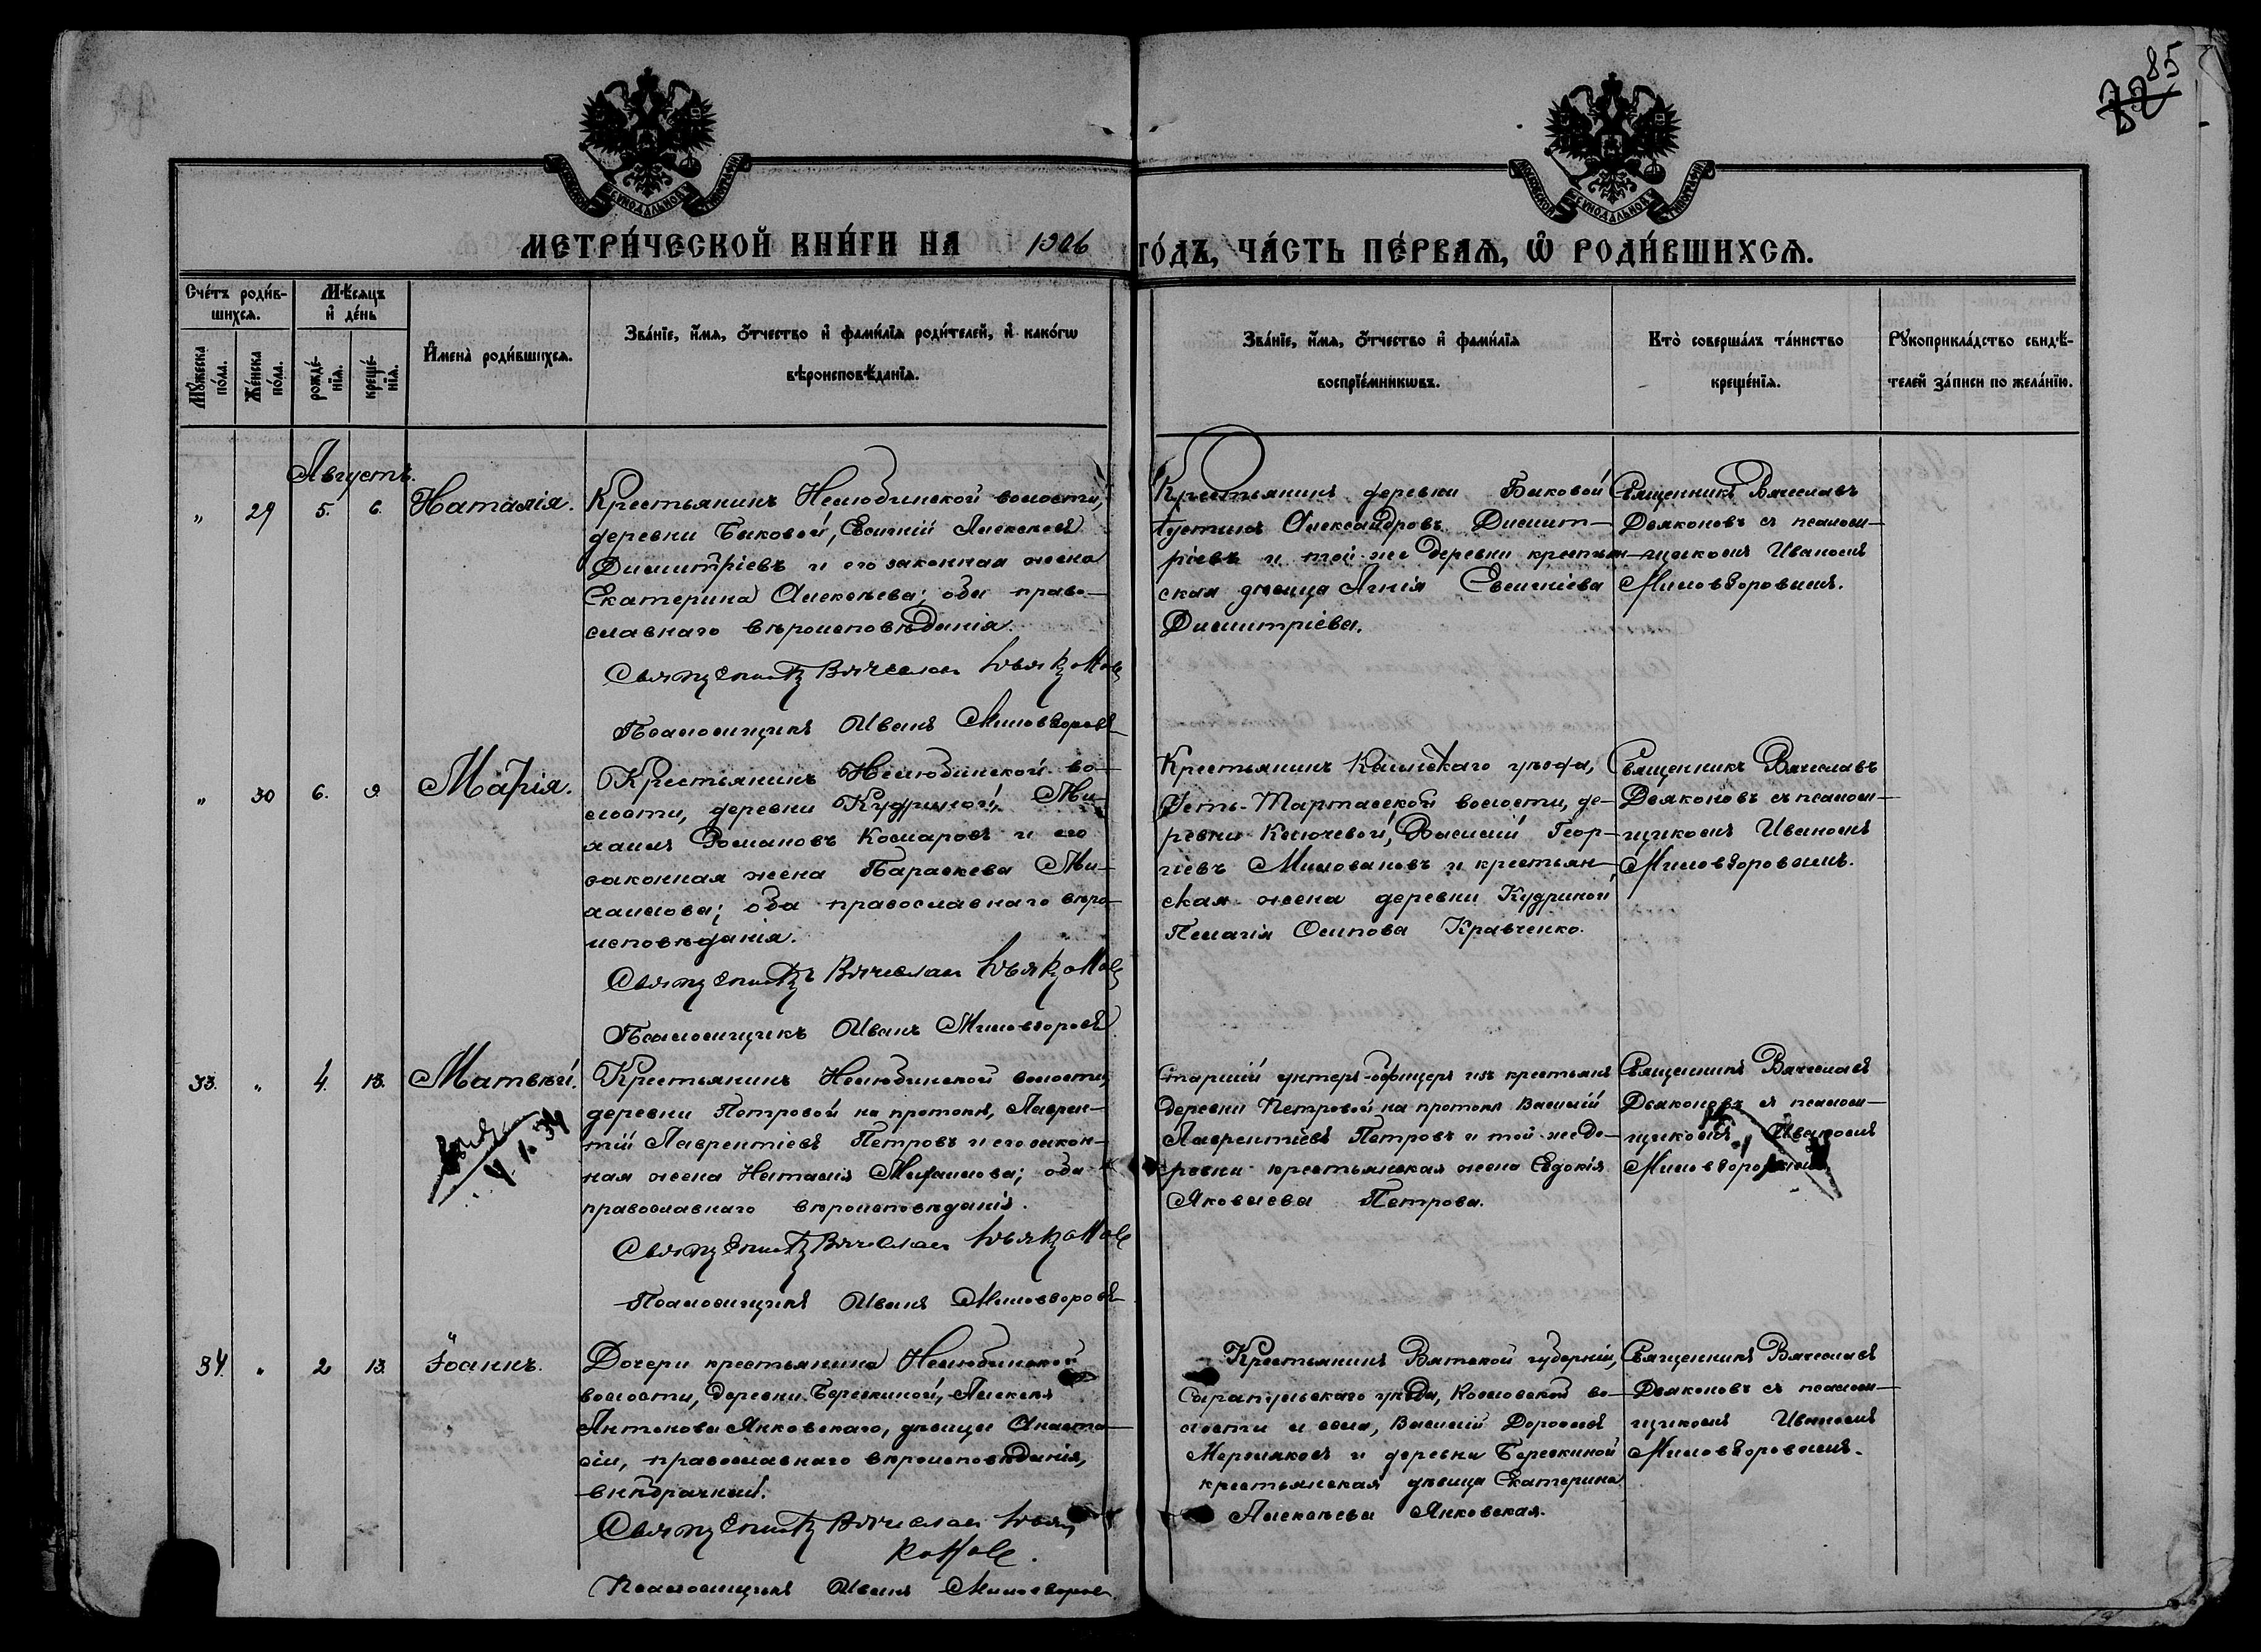 85
82
МОСКОВСКОЙ СѴНОДАЛЬНОЙ ТИПОГРАФІИ
МОСКОВСКОЙ СѴНОДАЛЬНОЙ ТИПОГРАФІИ
МЕТРИ́ЧЕСКОЙ КНИ́ГИ НА 1906 ГО́ДЪ, ЧА́СТЬ ПЕ́РВАѦ, Ѿ РОДИ́ВШИХСѦ.
Сче́тъ роди́в-
шихсѧ.
Мꙋ́жеска по́ла.
Же́нска по́ла.
Мѣ́сяцъ
и҆ де́нь
рожде́-
нїѧ.
креще́-
нїѧ.
И҆мена̀ роди́вшихсѧ.
Зва́нїе, и҆́мѧ, ѻ҆́тчество и҆ фами́лїѧ роди́телей, и҆ како́гѡ
вѣроисповѣ́данїѧ.
Зва́нїе, и҆́мѧ, ѻ҆́тчество и҆ фами́лїѧ
воспрїе́мникѡвъ.
Кто̀ соверша́лъ та́инство
креще́нїѧ.
Рꙋкоприкла́дство свидѣ́-
телей за́писи по жела́нїю.
Августъ.
„ 29 5. 6. Наталія.
Крестьянинъ Нелюбинской волости,
деревни Быковой, Евгеній Алексѣевъ
Димитріевъ и его законная жена
Екатерина Алексѣева; оба право-
славнаго вѣроисповѣданія.
Священникъ Вячеславъ Дьяконовъ
Псаломщикъ Иванъ Миловзоровъ
Крестьянинъ деревни Быковой
Іустинъ Александровъ Димит-
ріевъ и той же деревни крестьян-
ская дѣвица Агнія Евгеніева
Димитріева.
Священникъ Вячеславъ
Дьяконовъ съ псалом-
щикомъ Иваномъ
Миловзоровымъ.
„ 30 6. 9 Марія.
Крестьянинъ Нелюбинской во-
лости, деревни Кудриной, Ми-
хаилъ Романовъ Комаровъ и его
законная жена Параскева Ми-
хаилова; оба православнаго вѣро-
исповѣданія.
Священникъ Вячеславъ Дьяконовъ
Псаломщикъ Иванъ Миловзоровъ
Крестьянинъ Каинскаго уѣзда,
Усть-Тартасской волости, де-
ревни Ключевой, Василій Геор-
гіевъ Миловановъ и крестьян-
ская жена деревни Кудриной
Пелагія Осипова Кравченко.
Священникъ Вячеславъ
Дьяконовъ съ псалом-
щикомъ Иваномъ
Миловзоровымъ.
33. „ 4. 13. Матвѣй.
4.1.34
Крестьянинъ Нелюбинской волости,
деревни Петровой на протокѣ, Лаврен-
тій Лаврентіевъ Петровъ и его закон-
ная жена Наталія Михаилова; оба
православнаго вѣроисповѣданія.
Священникъ Вячеславъ Дьяконовъ
Псаломщикъ Иванъ Миловзоровъ
Старшій унтеръ-офицеръ изъ крестьянъ
деревни Петровой на протокѣ Василій
Лаврентіевъ Петровъ и той же де-
ревни крестьянская жена Евдокія
Яковлева Петрова.
Священникъ Вячеславъ
Дьяконовъ съ псалом-
щикомъ Иваномъ
Миловзоровымъ
34. „ 2 13. Іоаннъ.
Дочери крестьянина Нелюбинской
волости, деревни Березкиной, Алексѣя
Антонова Янковскаго, дѣвицы Анаста-
сіи, православнаго вѣроисповѣданія,
внѣбрачный.
Священникъ Вячеславъ Дья-
коновъ.
Псаломщикъ Иванъ Миловзоровъ
Крестьянинъ Вятской губерніи,
Сарапульскаго уѣзда, Козловской во-
лости и села, Василій Дороѳеевъ
Мерзляковъ и деревни Березкиной
крестьянская дѣвица Екатерина
Алексѣева Янковская.
Священникъ Вячеславъ
Дьяконовъ съ псалом-
щикомъ Иваномъ
Миловзоровымъ.